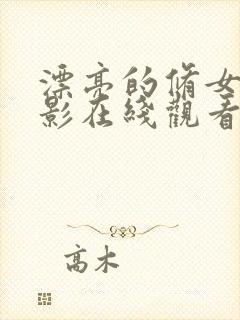 漂亮的脩女
影在綫觀看
高木